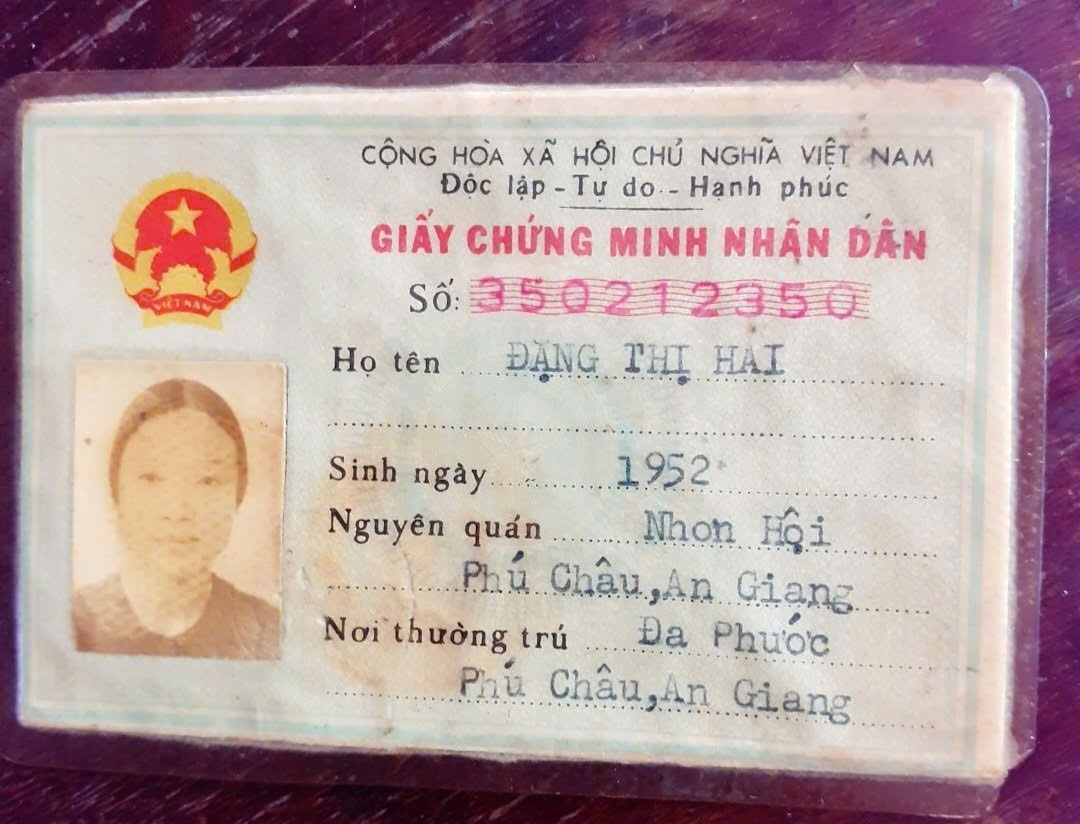 CỘNG HÒA XÃ HỘI CHỦ NGHĨA VIỆT NAM
Độc lập - Tự do - Hạnh phúc
GIẤY CHỨNG MINH NHÂN DÂN
Số: 350212350
VIỆT NAM
Họ tên ĐẶNG THỊ HAI
Sinh ngày 1952
Nguyên quán Nhơn Hội
Phú Châu,An Giang
Nơi thường trú Đa Phước
Phú Châu,An Giang